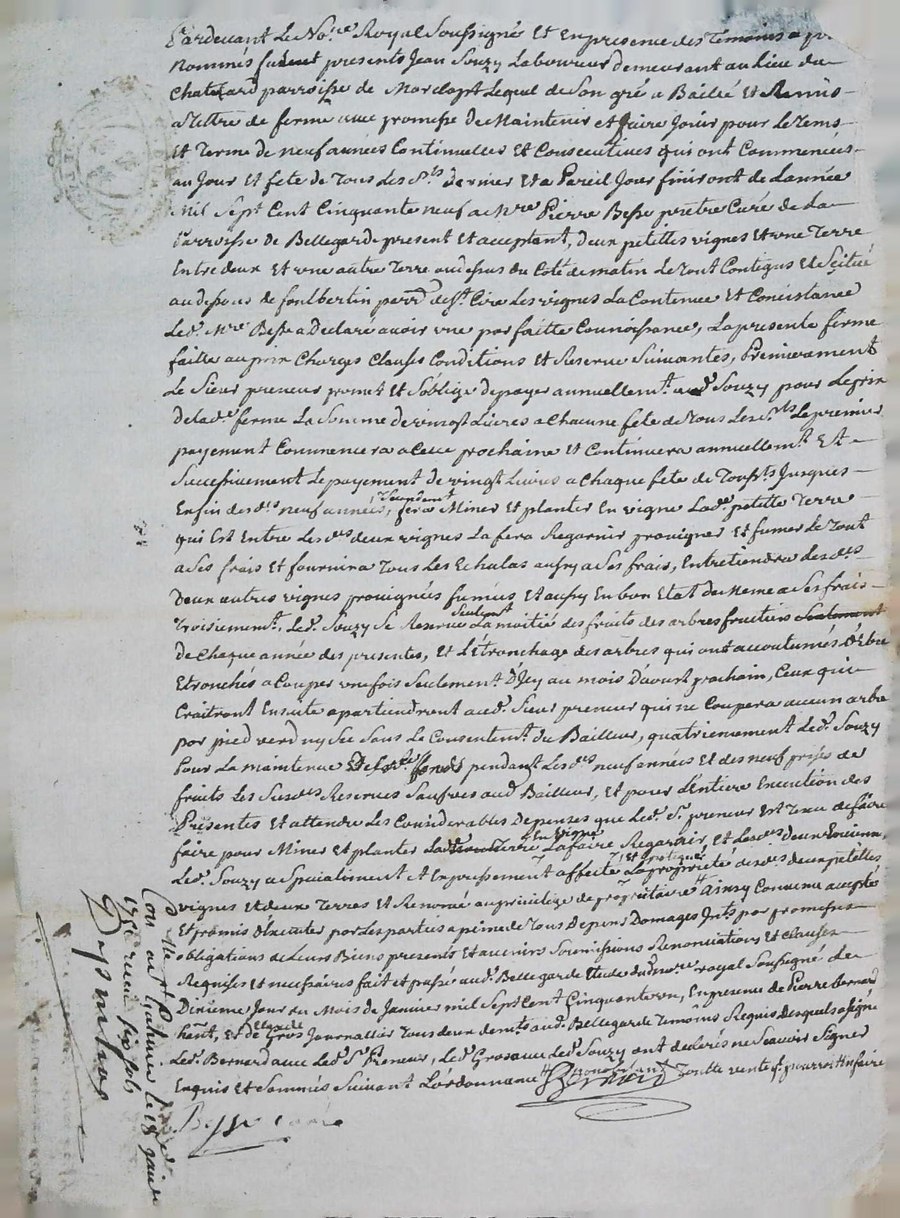 Pardevant Le No.re Royal Soussigné Et En presence des Temoins a
nommés furent presents Jean Souzy Laboureur demeurant au Lieu du
Chatelard parroisse de Marclopt Lequel de Son gré a Baillé Et Remis
a Tittre de ferme avec promesse de Maintenir et faire Jouir pour Le Tems
Et Terme de neuf années Continuelles Et Consecutives qui ont Commencées
au Jour Et fete de Tous Les S.ts dernier Et a Pareil Jour finiront de Lannée
Mil Sept Cent Cinquante neuf a M.re Pierre Besse prêtre Curé de La
Parroisse de Bellegarde present Et acceptant, deux petittes vignes Et une Terre
Entre deux Et une autre Terre au dessus du Coté de matin Le Tout Contigus Et Scitué
au dessous de fontbertin St. Cire Les vignes La Contenue Et Concistance
Led. M.re Besse a Declaré avoir une parfaitte Connoissance, La presente ferme
faitte au prix Charges Clauses Conditions Et Reserve Suivantes, Premierement
Le Sieur preneur promet Et S'oblige de payer annuellem.t aud. Souzy pour Le prix
de lad.e ferme La Somme de vingt Livres a chacune fete de Tous Les S.ts Le premier
payement Commencera a Celle prochaine Et Continuera annuellem.t Et
Successivement Le payement de vingt Livres a Chaque fete de Touss.ts Jusques
Enfin desd.es neuf années, fera Miner Et planter En vigne Lad.e petitte Terre
qui Est Entre Lesd.es deux vignes La fera Regarnir provigner Et fumer Le Tout
a Ses frais Et fournira Tous Les Echalas aussy a Ses frais, Entretiendra Lesd.es
Deux autres vignes provignées fumées Et aussy En bon Etat de Meme a Ses frais
Troisiement, Led. Souzy Se Reserve Seulem.t La moitié des fruits des arbres fruitiers
de Chaque année des presentes, Et L'Etronchage des arbres qui ont accoutumés D'Etre
Etronchés a Couper une fois Seulement D'Icy au mois D'aoust prochain, Ceux qui
Craitront Ensuite apartiendront aud. Sieur preneur qui ne Coupera aucun arbre
par pied verd ny Sec Sans Le Consentem.t du Bailleur, quatriemement Led. Souzy
Pour La maintenue fonds pendent Lesd.es neuf années Et des neuf prises de
fruits Les Susd.es Reserves Sauves aud. Bailleur, Et pour L'Entiere Execution des
Presentes Et attendre Les Considerables Depenses que Led. S.r preneur Est Tenu de faire
faire pour Miner Et planter En vigne Terre La faire Regarnir, Et Lesd.es deux
Led. Souzy a Specialement Et Expressement affecté La proprieté desd.es deux petittes
vignes Et deux Terres Et Renoncé au privilege de propriétaire Ainsy Convenu accepté
Et promis D'Executer par Les parties a peine de Tous Depens Domages Int.ts par promesses
obligations de Leurs Biens presents Et avenirs Soumissions Renonciations Et Clauses
Requises Et necessaires fait Et passé aud. Bellegarde royal Soussigné Le
Dixieme Jour du Mois de Janvier mil Sept Cent Cinquante un, En presence de Pierre Bernard
Et Gros Journallier Tous deux demts aud. Bellegarde Temoins Requis Desquels a Signé
Led. Bernard avec Led. S.r Preneur, Led. Gros avec Led. Souzy ont declarés ne Scavoir Signer
Enquis Et Sommés Suivant L'ordonnance
Besse curé
Bernard